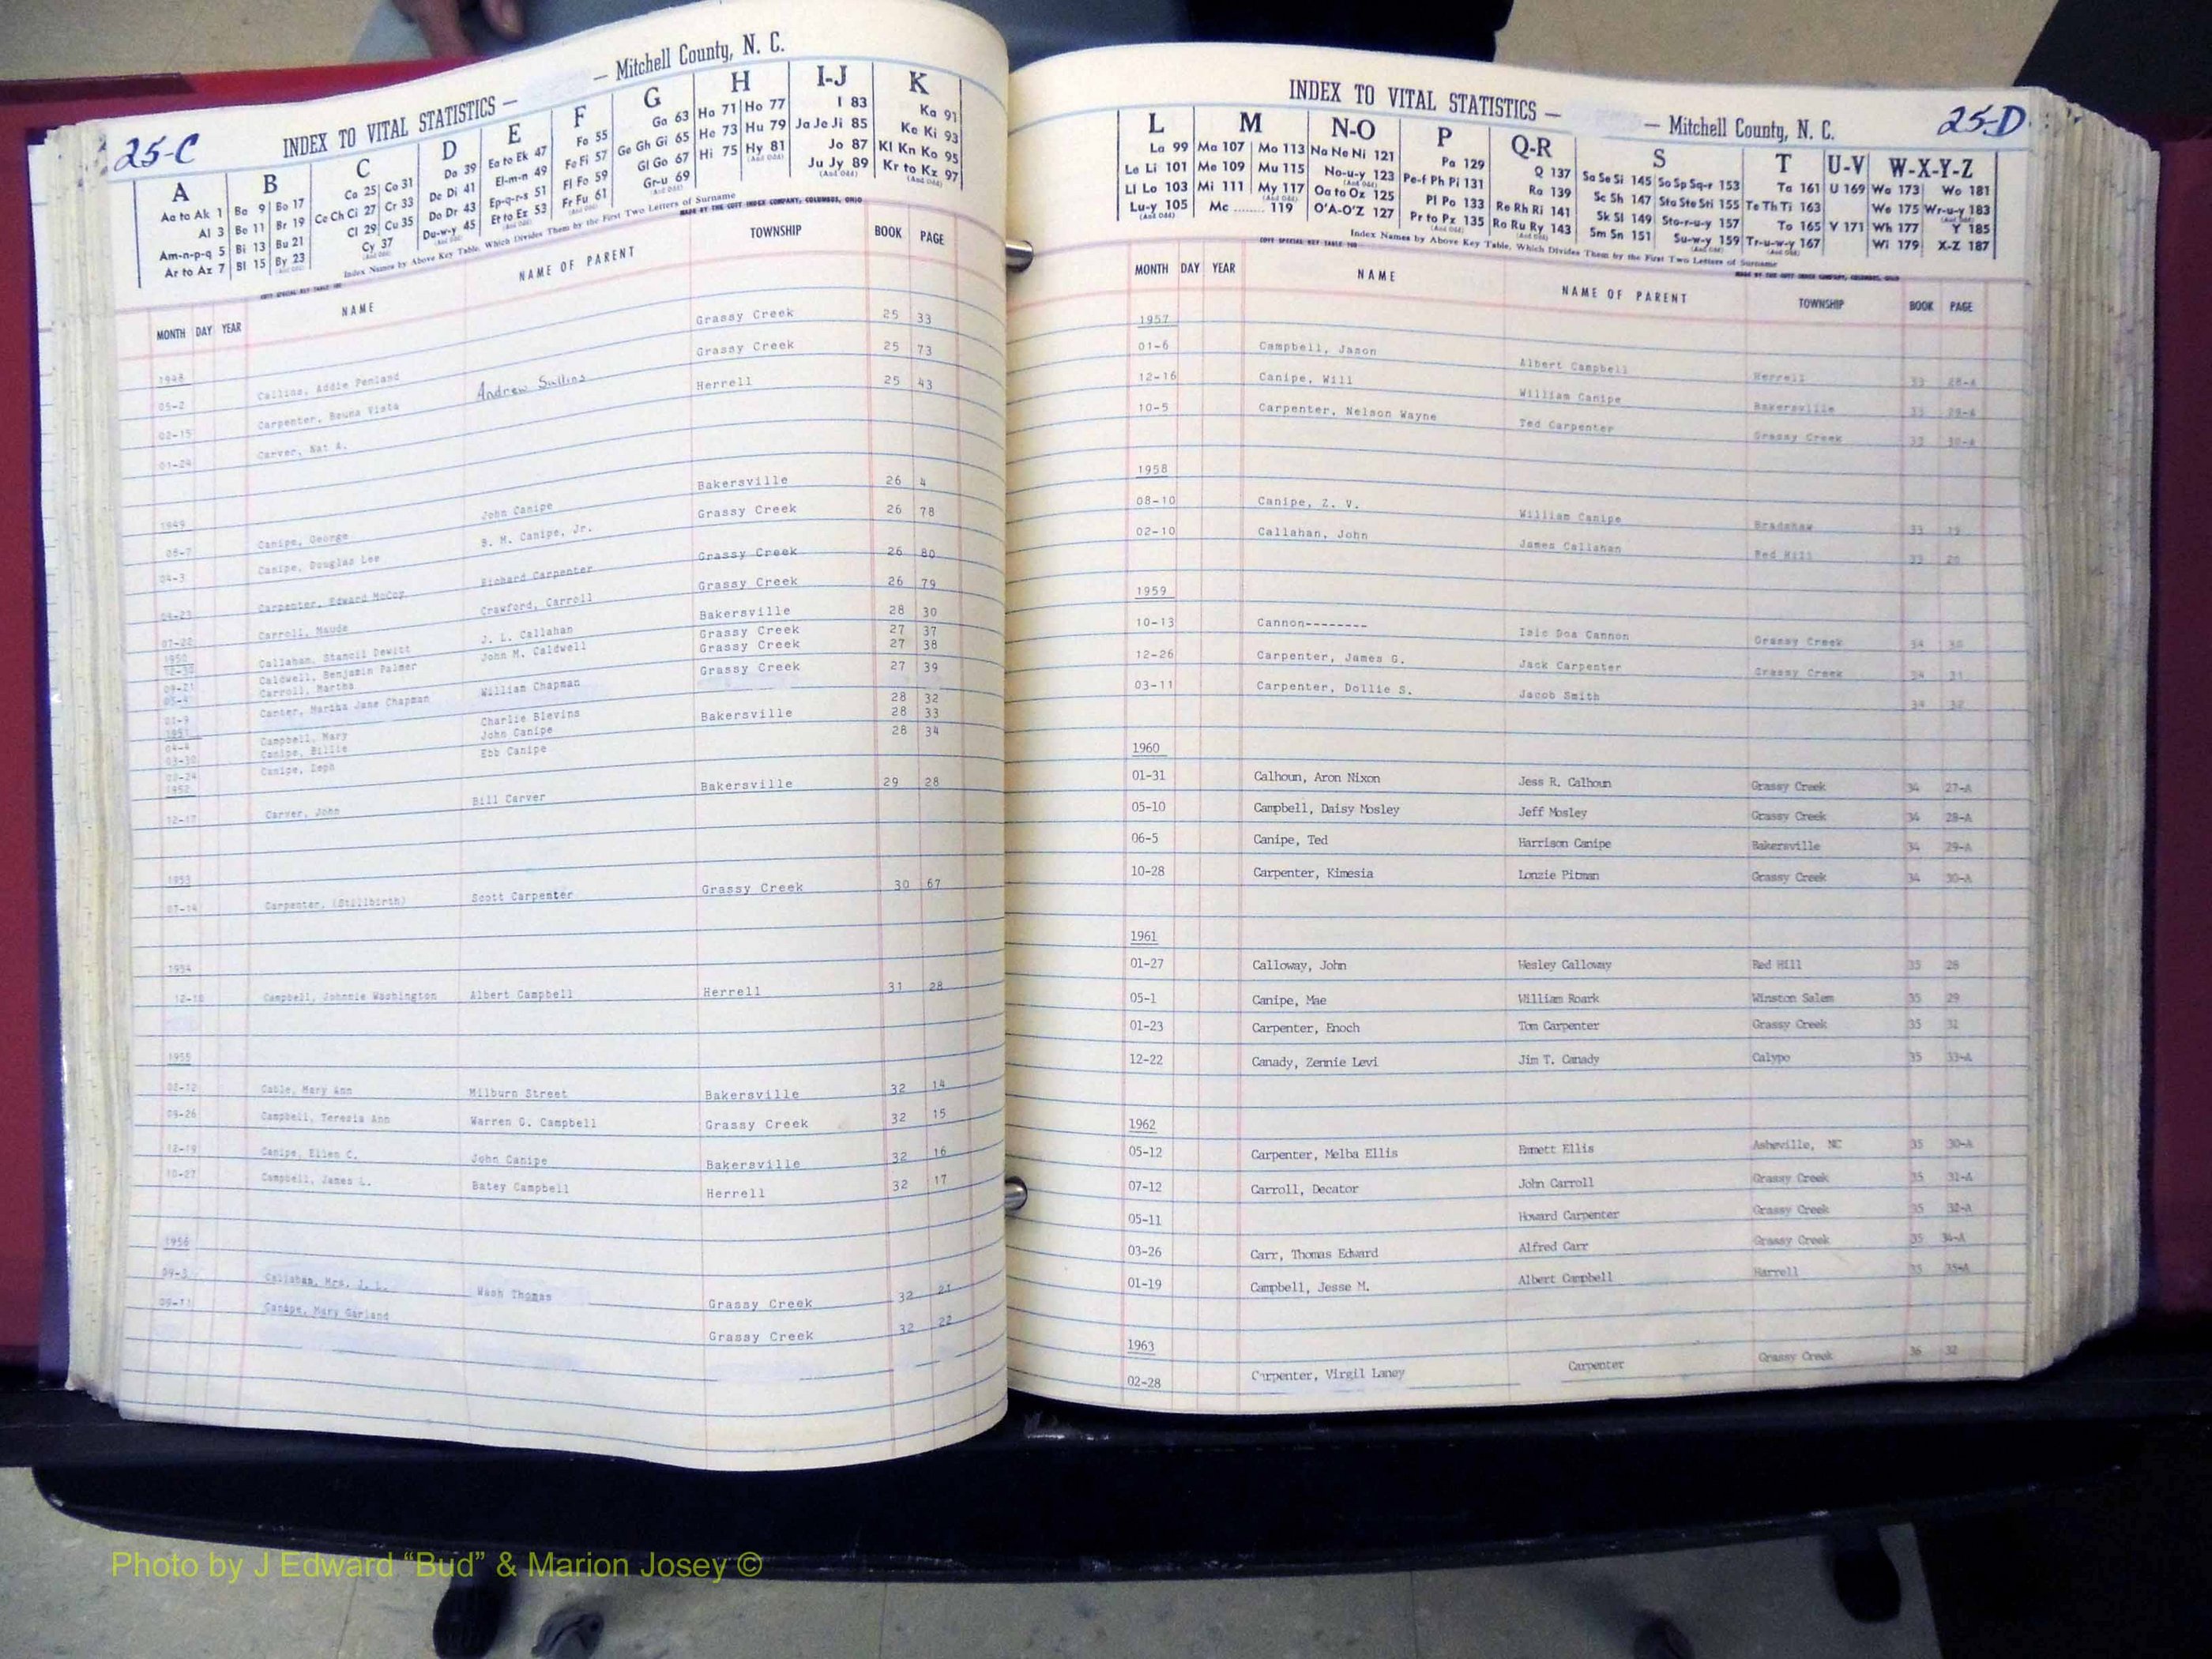 25-C
INDEX TO VITAL STATISTICS — — Mitchell County, N. C.
A B C D E F G H I-J K
Aa to Ak 1 Ba 9 Bo 17 Ca 25 Co 31 Da 39 Ea to Ek 47 Fa 55 Ga 63 Ha 71 Ho 77 I 83 Ka 91
Al 3 Be 11 Br 19 Ce Ch Ci 27 Cr 33 De Di 41 El-m-n 49 Fe Fi 57 Ge Gh Gi 65 He 73 Hu 79 Ja Je Ji 85 Ke Ki 93
Am-n-p-q 5 Bi 13 Bu 21 Cl 29 Cu 35 Do Dr 43 Ep-q-r-s 51 Fl Fo 59 Gl Go 67 Hi 75 Hy 81 Jo 87 Kl Kn Ko 95
Ar to Az 7 Bl 15 By 23 Cy 37 Du-w-y 45 Et to Ez 53 Fr Fu 61 Gr-u 69 Ju Jy 89 Kr to Kz 97
Index Names by Above Key Table, Which Divides Them by the First Two Letters of Surname
MADE BY THE COTT INDEX COMPANY, COLUMBUS, OHIO
MONTH DAY YEAR NAME NAME OF PARENT TOWNSHIP BOOK PAGE
1948
05-2 Collins, Addie Penland Grassy Creek 25 33
02-15 Carpenter, Beuna Vista Andrew Sullins Grassy Creek 25 73
01-24 Carver, Nat A. Herrell 25 43
1949
08-7 Canipe, George John Canipe Bakersville 26 4
04-3 Canipe, Douglas Lee B. M. Canipe, Jr. Grassy Creek 26 78
04-23 Carpenter, Edward McCoy Richard Carpenter Grassy Creek 26 80
07-22 Carroll, Maude Crawford, Carroll Grassy Creek 26 79
1950
12-30 Callaham, Stancil Dewitt J. L. Callahan Bakersville 28 30
09-21 Caldwell, Benjamin Palmer John M. Caldwell Grassy Creek 27 37
05-4 Carroll, Martha Grassy Creek 27 38
01-9 Canter, Martha Jane Chapman William Chapman Grassy Creek 27 39
1951
04-4 Campbell, Mary Charlie Blevins 28 32
03-30 Canipe, Billie John Canipe Bakersville 28 33
08-24 Canipe, Zeph Ebb Canipe 28 34
1952
12-17 Carver, John Bill Carver Bakersville 29 28
1953
07-14 Carpenter, (Stillbirth) Scott Carpenter Grassy Creek 30 67
1954
12-18 Campbell, Johnnie Washington Albert Campbell Herrell 31 28
1955
02-12 Cable, Mary Ann Milburn Street Bakersville 32 14
09-26 Campbell, Teresia Ann Warren G. Campbell Grassy Creek 32 15
12-19 Canipe, Ellen C. John Canipe Bakersville 32 16
10-27 Campbell, James L. Batey Campbell Herrell 32 17
1956
09-3 Callahan, Mrs. J. L. Wash Thomas Grassy Creek 32 21
09-11 Canipe, Mary Garland Grassy Creek 32 22
INDEX TO VITAL STATISTICS — — Mitchell County, N. C.
25-D
L M N-O P Q-R S T U-V W-X-Y-Z
La 99 Ma 107 Mo 113 Na Ne Ni 121 Pa 129 Q 137 Sa Se Si 145 So Sp Sq-r 153 Ta 161 U 169 Wa 173 Wo 181
Le Li 101 Me 109 Mu 115 No-u-y 123 Pe-f Ph Pi 131 Ra 139 Sc Sh 147 Sta Ste Sti 155 Te Th Ti 163 We 175 Wr-u-y 183
Ll Lo 103 Mi 111 My 117 Oa to Oz 125 Pl Po 133 Re Rh Ri 141 Sk Sl 149 Sto-r-u-y 157 To 165 V 171 Wh 177 Y 185
Lu-y 105 Mc ........ 119 O'A-O'Z 127 Pr to Px 135 Ro Ru Ry 143 Sm Sn 151 Su-w-y 159 Tr-u-w-y 167 Wi 179 X-Z 187
Index Names by Above Key Table, Which Divides Them by the First Two Letters of Surname
MADE BY THE COTT INDEX COMPANY, COLUMBUS, OHIO
MONTH DAY YEAR NAME NAME OF PARENT TOWNSHIP BOOK PAGE
1957
01-6 Campbell, Jason Albert Campbell Herrell 33 28-A
12-16 Canipe, Will William Canipe Bakersville 33 29-A
10-5 Carpenter, Nelson Wayne Ted Carpenter Grassy Creek 33 30-A
1958
08-10 Canipe, Z. V. William Canipe Bradshaw 33 19
02-10 Callahan, John James Callahan Red Hill 33 20
1959
10-13 Cannon-------- Isic Doa Cannon Grassy Creek 34 30
12-26 Carpenter, James G. Jack Carpenter Grassy Creek 34 31
03-11 Carpenter, Dollie S. Jacob Smith 34 32
1960
01-31 Calhoun, Aron Nixon Jess R. Calhoun Grassy Creek 34 27-A
05-10 Campbell, Daisy Mosley Jeff Mosley Grassy Creek 34 28-A
06-5 Canipe, Ted Harrison Canipe Bakersville 34 29-A
10-28 Carpenter, Kimesia Lonzie Pitman Grassy Creek 34 30-A
1961
01-27 Calloway, John Wesley Calloway Red Hill 35 28
05-1 Canipe, Mae William Roark Winston Salem 35 29
01-23 Carpenter, Enoch Tom Carpenter Grassy Creek 35 32
12-22 Canady, Zennie Levi Jim T. Canady Calypo 35 33-A
1962
05-12 Carpenter, Melba Ellis Emmett Ellis Asheville, NC 35 30-A
07-12 Carroll, Decator John Carroll Grassy Creek 35 31-A
05-11 Howard Carpenter Grassy Creek 35 32-A
03-26 Carr, Thomas Edward Alfred Carr Grassy Creek 35 34-A
01-19 Campbell, Jesse M. Albert Campbell Harrell 35 35-A
1963
02-28 Carpenter, Virgil Laney Carpenter Grassy Creek 36 32
Photo by J Edward “Bud” & Marion Josey ©